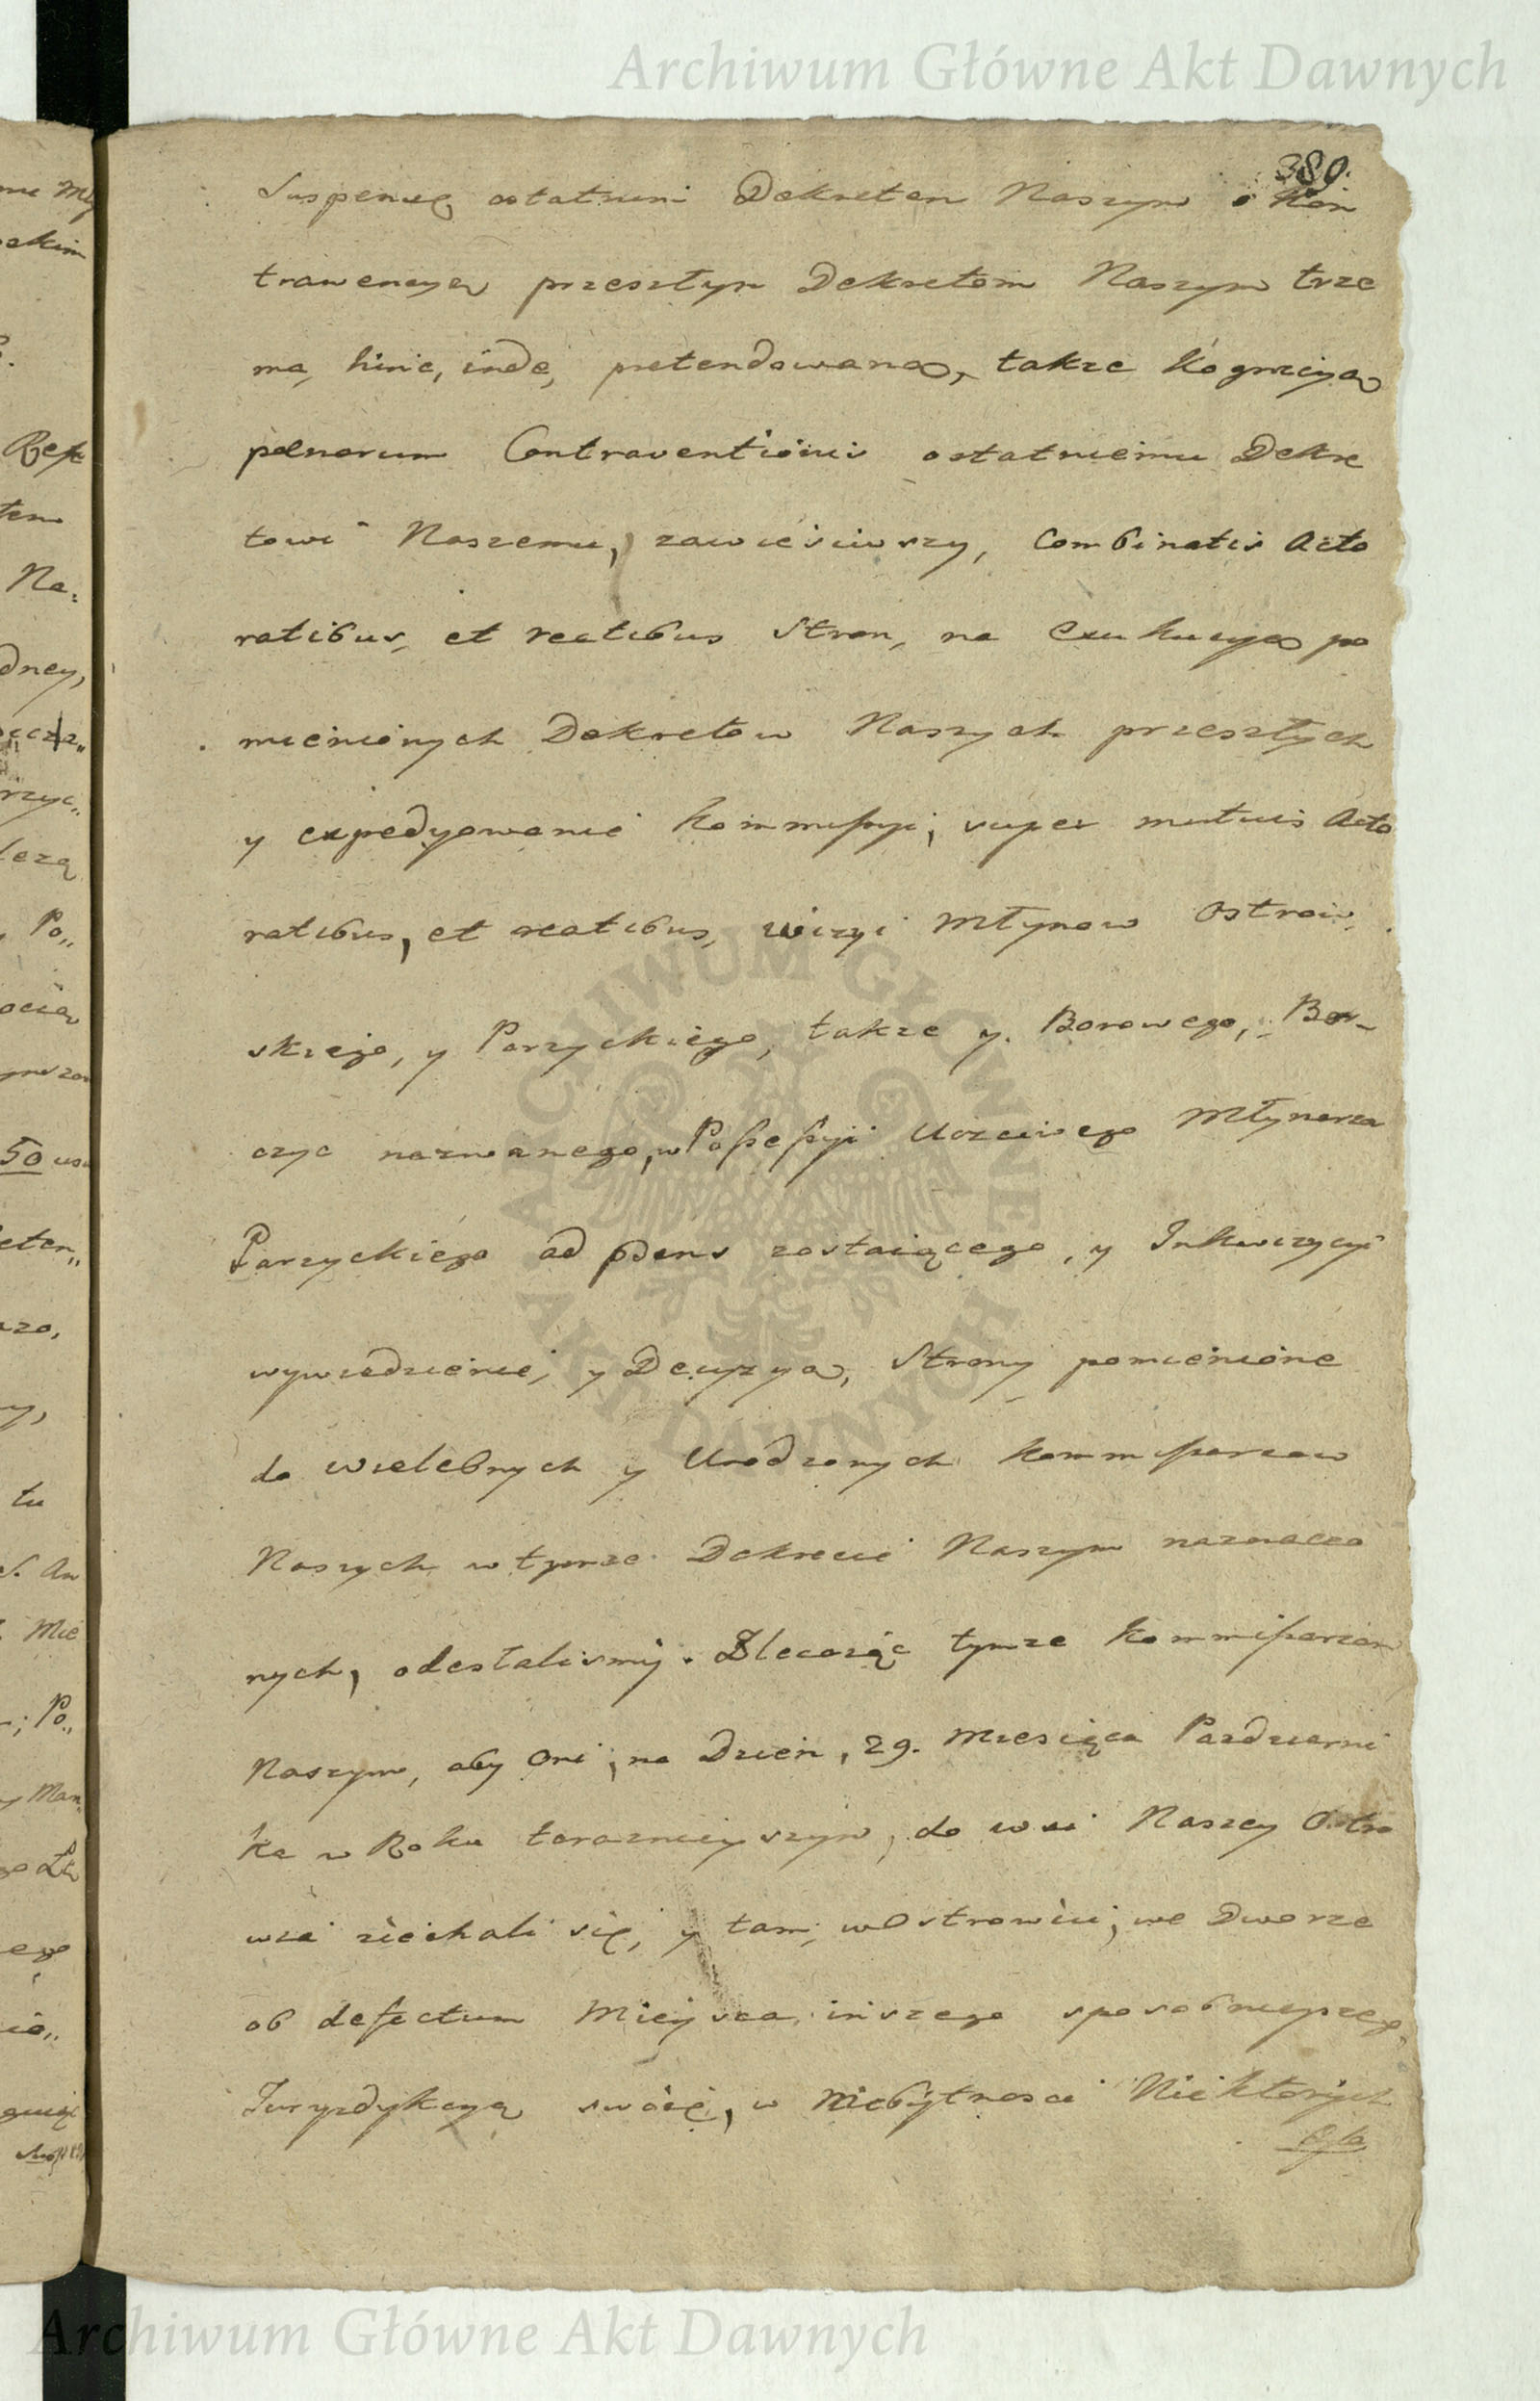 Archiwum Główne Akt Dawnych
389.
Suspensę ostatnim Dekretem Naszym i Kon
trawencyą przeszłym Dekretom Naszym trze
ma, hinc, inde, pretendowaną, także kognicyą
poenarum Contraventionis ostatniemu Dekre
towi Naszemu, zawiesiwszy, Combinatis Acto
ratibus, et reatibus Stron, na Exekucyą po
mienionych Dekretow Naszych przeszłych
y expedyowanie Kommissyi, super mutuis Acto
ratibus, et reatibus, wizyi Młynow Ostrow,
skiego, y Parzyckiego, także y Borowego, Bor-
czyc nazwanego, w Possessyi Uczciwego Młynarza
Parzyckiego ad praens zostaiącego, y Inkwizycyi
wywiedzienie, y Decyzyą, Strony pomienione
do Wielebnych y Urodzonych Kommissarzow
Naszych w tymze Dekrecie Naszym naznaczo
nych, odesłalismy. Zlecaiąc tymze Kommissarzom
Naszym, aby Oni, na Dzien, 29. Miesiąca Pazdzierni
ka w Roku teraznieyszym, do wsi Naszey Ostro
wia ziechali się, y tam, w Ostrowiu, we Dworze
ob defectum Mieysca inszego sposobnieyszego,
Juryzdykcyą swoię, w Niebytnosci Niektorych
ARCHIWUM GŁÓWNE AKT DAWNYCH
Archiwum Główne Akt Dawnych